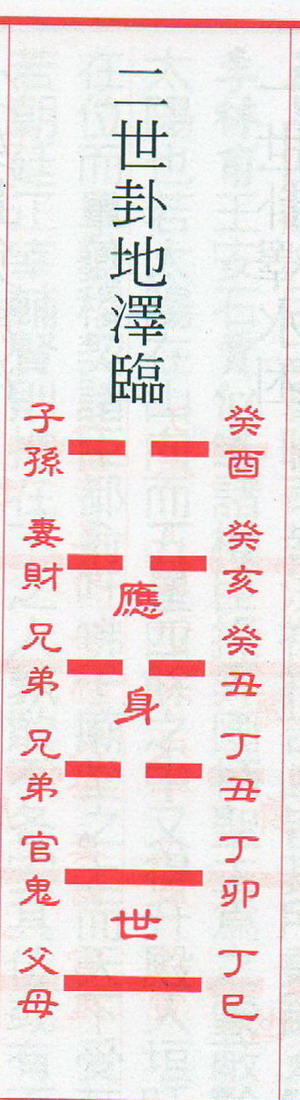 二世卦地澤臨
癸酉
癸亥
癸丑
丁丑
丁卯
丁巳
應
身
世
子孫
妻財
兄弟
兄弟
官鬼
父母